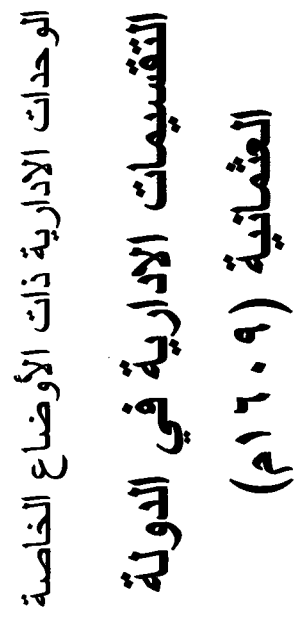 الوحدات الادارية ذات الأوضاع الخاصة
التقسيمات الادارية في الدولة
العثمانية (١٦٠٩م)